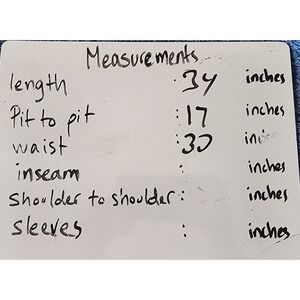 Measurements
length : 34 inches
Pit to pit : 17 inches
waist : 30 inches
inseam : inches
Shoulder to shoulder : inches
Sleeves : inches